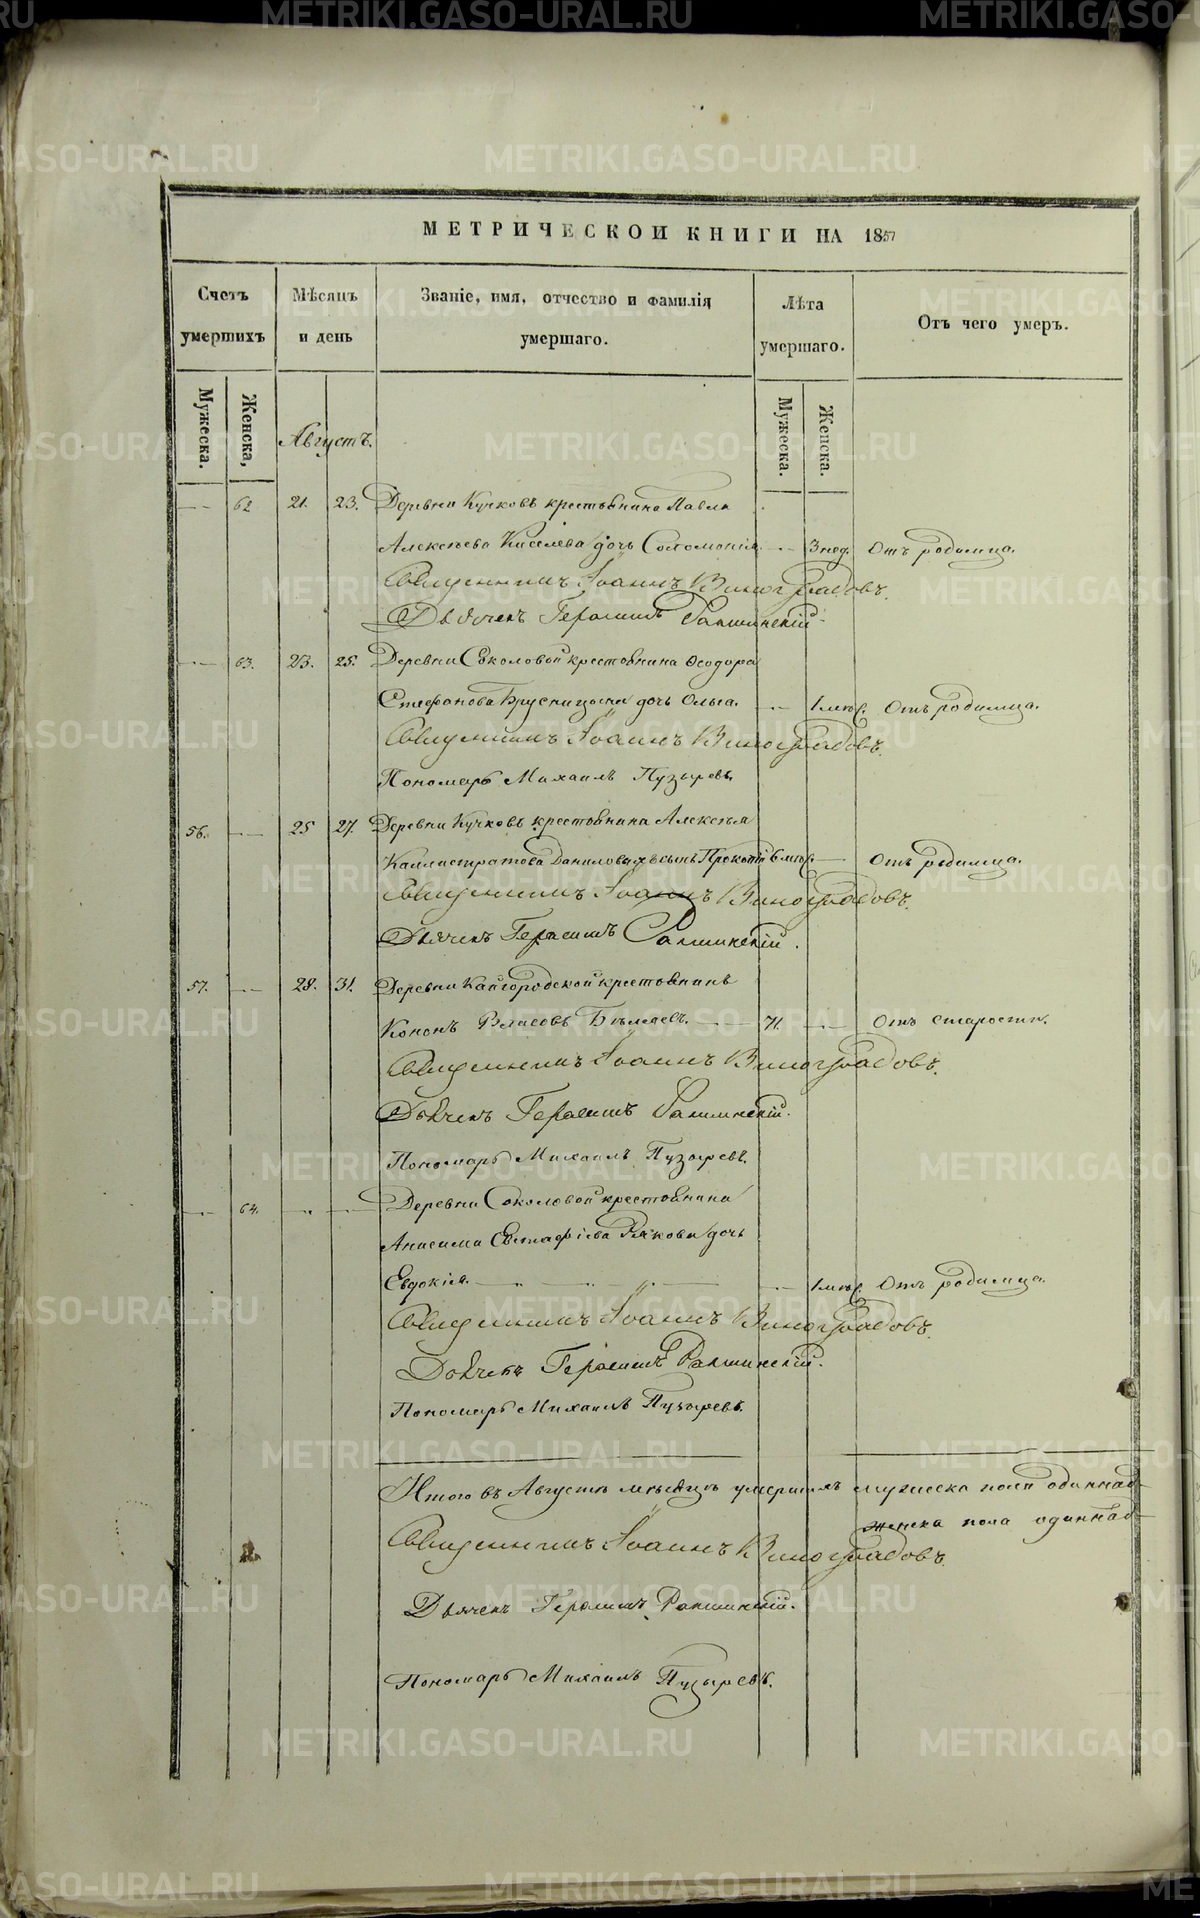 МЕТРИЧЕСКОИ КНИГИ НА 1857
Счетъ умершихъ
Мѣсяцъ и день
Званіе, имя, отчество и фамилія умершаго.
Лѣта умершаго.
Отъ чего умеръ.
Мужеска.
Женска,
Мужеска.
Женска.
Августъ.
62 21. 23. Деревни Кучковъ крестьянина Павла
Алексѣева Киселева дочь Соломонія. 3 нед. Отъ родимца.
Священникъ Іоаннъ Виноградовъ.
Дьячекъ Герасимъ
63. 23. 25. Деревни Соколовой крестьянина Ѳеодора
Стефанова Брусницына дочь Ольга. 1 мѣс. Отъ родимца.
Священникъ Іоаннъ Виноградовъ.
Пономарь Михаилъ Пузыревъ.
56. 25 27. Деревни Кучковъ крестьянина Алексѣя
Каллистратова сынъ Прокопій 6 мѣс. Отъ родимца.
Священникъ Іоаннъ Виноградовъ.
Дьячекъ Герасимъ
57. 28. 31. Деревни Кайгородской крестьянинъ
Кононъ Власовъ 71. Отъ старости.
Священникъ Іоаннъ Виноградовъ.
Дьячекъ Герасимъ
Пономарь Михаилъ Пузыревъ.
64. Деревни Соколовой крестьянина
Анисима Евстафіева дочь
Евдокія. 1 мѣс. Отъ родимца.
Священникъ Іоаннъ Виноградовъ.
Дьячекъ Герасимъ
Пономарь Михаилъ Пузыревъ.
Итого въ Августѣ мѣсяцѣ умершихъ мужеска пола одиннад-
женска пола одиннад-
Священникъ Іоаннъ Виноградовъ.
Дьячекъ Герасимъ
Пономарь Михаилъ Пузыревъ.
METRIKI.GASO-URAL.RU